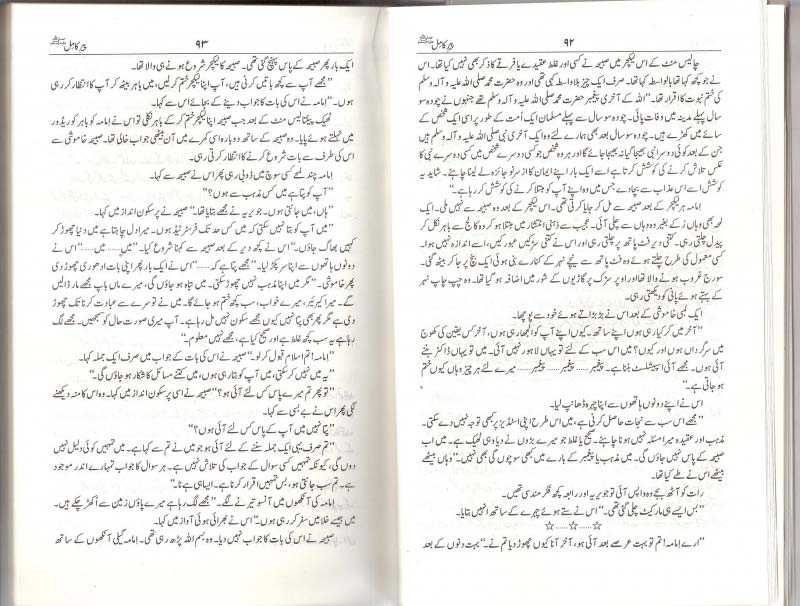 ۹۲
پیر کامل
چالیس منٹ کے اس لیکچر میں صبیحہ نے کسی اور غلط عقیدے یا فرقے کا ذکر بھی نہیں کیا تھا۔ اس
نے جو کچھ کہا تھا بالواسطہ کہا تھا۔ صرف ایک چیز بلاواسطہ کہی تھی اور وہ حضرت محمد صلی اللہ علیہ و آلہ وسلم
کی ختم نبوت کا اقرار تھا۔ "اللہ کے آخری پیغمبر حضرت محمد صلی اللہ علیہ و آلہ وسلم تھے جنہوں نے چودہ سو
سال پہلے مدینہ میں وفات پائی۔ چودہ سو سال سے پہلے مسلمان ایک امت کے طور پر اسی ایک شخص کے
سائے میں کھڑے ہیں۔ چودہ سو سال بعد بھی ہمارے لئے وہ ایک آخری نبی صلی اللہ علیہ و آلہ وسلم ہیں
جن کے بعد کوئی دوسرا نبی بھیجا گیا نہ بھیجا جائے گا اور ہر وہ شخص جو کسی دوسرے شخص میں کسی دوسرے نبی کا
عکس تلاش کرنے کی کوشش کرتا ہے اسے ایک بار اپنے ایمان کا از سر نو جائزہ لے لینا چاہئے۔ شاید یہ
کوشش اسے اس عذاب سے بچا دے جس میں وہ اپنے آپ کو مبتلا کرنے کی کوشش کر رہا ہے۔"
امامہ ہر لیکچر کے بعد صبیحہ سے مل کر جایا کرتی تھی۔ اس لیکچر کے بعد وہ صبیحہ سے نہیں ملی۔ ایک
لمحہ بھی وہاں رکے بغیر وہ وہاں سے چلی آئی۔ عجیب سے ذہنی انتشار میں مبتلا ہو کر وہ کالج سے باہر نکل کر
پیدل چلتی رہی۔ کتنی دیر فٹ پاتھ پر چلتی رہی اور اس نے کتنی سڑکیں عبور کیں، اسے اندازہ نہیں ہوا۔
کسی معمول کی طرح چلتے ہوئے وہ فٹ پاتھ سے نیچے نہر کے کنارے بنی ہوئی ایک بنچ پر جا کر بیٹھ گئی۔
سورج غروب ہونے والا تھا اور اوپر سڑک پر گاڑیوں کے شور میں اضافہ ہو گیا تھا۔ وہ چپ چاپ نہر
کے بہتے ہوئے پانی کو دیکھتی رہی۔
ایک لمبی خاموشی کے بعد اس نے بڑبڑاتے ہوئے خود سے پوچھا۔
"آخر میں کر کیا رہی ہوں اپنے ساتھ۔ کیوں اپنے آپ کو الجھا رہی ہوں، آخر کس یقین کی کھوج
میں سرگرداں ہوں اور کیوں؟ میں اس سب کے لئے تو یہاں لاہور نہیں آئی۔ میں تو یہاں ڈاکٹر بننے
آئی ہوں۔ مجھے آئی اسپیشلسٹ بننا ہے۔ پیغمبر ...... پیغمبر ...... پیغمبر ...... میرے لئے ہر چیز وہاں کیوں ختم
ہو جاتی ہے۔"
اس نے اپنے دونوں ہاتھوں سے اپنا چہرہ ڈھانپ لیا۔
"مجھے اس سب سے نجات حاصل کرنی ہے، میں اس طرح اپنی اسٹڈیز پر کبھی توجہ نہیں دے سکتی۔
مذہب اور عقیدہ میرا مسئلہ نہیں ہونا چاہئے۔ صحیح یا غلط جو میرے بڑوں نے دیا وہی ٹھیک ہے۔ میں اب
صبیحہ کے پاس نہیں جاؤں گی۔ میں مذہب یا پیغمبر کے بارے میں کبھی سوچوں گی بھی نہیں۔" وہاں بیٹھے
بیٹھے اس نے طے کیا تھا۔
رات کو آٹھ بجے وہ واپس آئی تو جویریہ اور رابعہ کچھ فکر مند سی تھیں۔
"بس ایسے ہی مارکیٹ چلی گئی تھی۔" اس نے ستے ہوئے چہرے کے ساتھ انہیں بتایا۔
☆.....☆.....☆
"ارے امامہ! تم تو بہت عرصے بعد آئی ہو، آخر آنا کیوں چھوڑ دیا تم نے۔" بہت دنوں کے بعد
۹۳
پیر کامل
ایک بار پھر صبیحہ کے پاس پہنچ گئی تھی۔ صبیحہ کا لیکچر شروع ہونے ہی والا تھا۔
"مجھے آپ سے کچھ باتیں کرنی ہیں، آپ اپنا لیکچر ختم کر لیں، میں باہر بیٹھ کر آپ کا انتظار کر رہی
ہوں۔" امامہ نے اس کی بات کا جواب دینے کے بجائے اس سے کہا۔
ٹھیک پینتالیس منٹ کے بعد جب صبیحہ اپنا لیکچر ختم کر کے باہر نکلی تو اس نے امامہ کو باہر کوریڈور
میں ٹہلتے ہوئے پایا۔ وہ صبیحہ کے ساتھ دوبارہ اسی کمرے میں آن بیٹھی جو اب خالی تھا۔ صبیحہ خاموشی سے
اس کی طرف سے بات شروع کرنے کا انتظار کرتی رہی۔
امامہ چند لمحے کسی سوچ میں ڈوبی رہی پھر اس نے صبیحہ سے کہا۔
"آپ کو پتا ہے میں کس مذہب سے ہوں؟"
"ہاں، میں جانتی ہوں۔ جویریہ نے مجھے بتایا تھا۔" صبیحہ نے پرسکون انداز میں کہا۔
"میں آپ کو بتا نہیں سکتی کہ میں کس حد تک فرسٹرٹیڈ ہوں۔ میرا دل چاہتا ہے میں دنیا چھوڑ کر
کہیں بھاگ جاؤں۔" اس نے کچھ دیر کے بعد صبیحہ سے کہنا شروع کیا۔ "میں ...... میں ......" اس نے
دونوں ہاتھوں سے اپنا سر پکڑ لیا۔ "مجھے پتا ہے کہ ......" اس نے ایک بار پھر اپنی بات ادھوری چھوڑ دی
پھر خاموشی۔ "مگر میں اپنا مذہب نہیں چھوڑ سکتی۔ میں تباہ ہو جاؤں گی، میرے ماں باپ مجھے مار ڈالیں
گے۔ میرا کیریئر، میرے خواب، سب کچھ ختم ہو جائے گا۔ میں نے تو سرے سے عبادت کرنا تک چھوڑ
دی ہے مگر پھر بھی پتا نہیں کیوں مجھے سکون نہیں مل رہا ہے۔ آپ میری صورت حال کو سمجھیں۔ مجھے لگ
رہا ہے یہ سب کچھ غلط ہے اور صحیح کیا ہے، مجھے نہیں معلوم۔"
"امامہ! تم اسلام قبول کر لو۔" صبیحہ نے اس کی بات کے جواب میں صرف ایک جملہ کہا۔
"یہ میں نہیں کر سکتی، میں آپ کو بتا رہی ہوں، میں کتنے مسائل کا شکار ہو جاؤں گی۔"
"تو پھر تم میرے پاس کس لئے آئی ہو؟" صبیحہ نے اسی پرسکون انداز میں کہا۔ وہ اس کا منہ دیکھنے
لگی پھر اس نے بے بسی سے کہا۔
"پتا نہیں میں آپ کے پاس کس لئے آئی ہوں؟"
"تم صرف یہی ایک جملہ سننے کے لئے آئی ہو جو میں نے تم سے کہا ہے۔ میں تمہیں کوئی دلیل نہیں
دوں گی، کیونکہ تمہیں کسی سوال کے جواب کی تلاش نہیں ہے۔ ہر سوال کا جواب تمہارے اندر موجود
ہے۔ تم سب جانتی ہو، بس تمہیں اقرار کرنا ہے۔ ایسا ہی ہے نا۔"
امامہ کی آنکھوں میں آنسو تیرنے لگے۔ "مجھے لگ رہا ہے میرے پاؤں زمین سے اکھڑ چکے ہیں۔
میں جیسے خلا میں سفر کر رہی ہوں۔" اس نے بھرائی ہوئی آواز میں کہا۔
صبیحہ نے اس کی بات کا جواب نہیں دیا۔ وہ بسم اللہ پڑھ رہی تھی۔ امامہ گیلی آنکھوں کے ساتھ